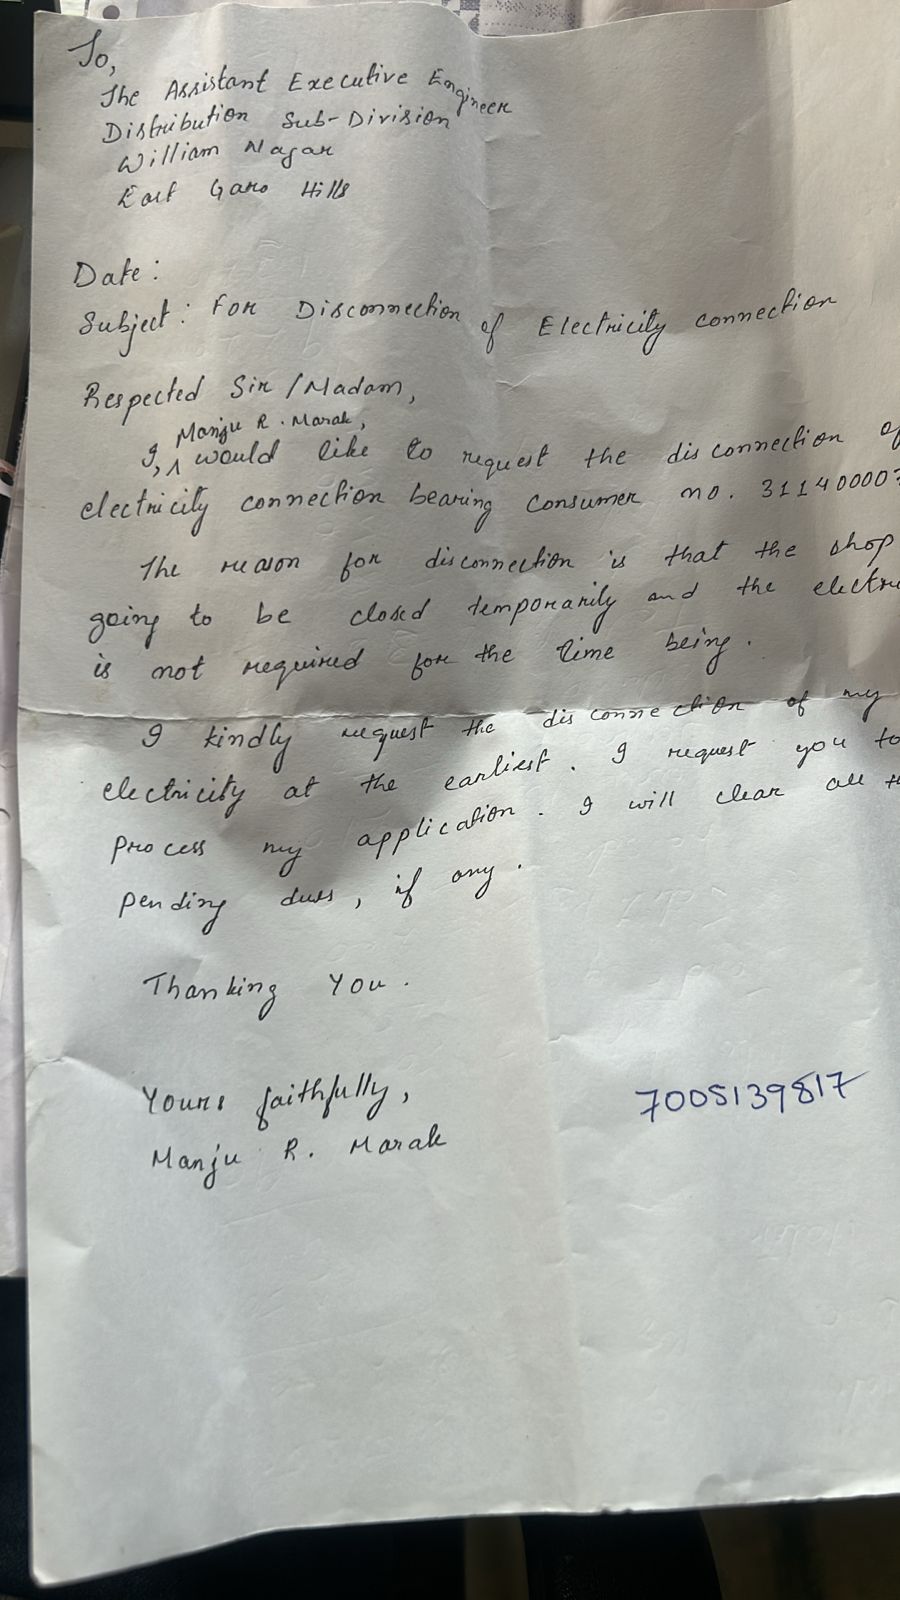 To,
The Assistant Executive Engineer
Distribution Sub-Division
William Nagar
East Garo Hills
Date :
Subject : For Disconnection of Electricity connection
Respected Sir / Madam,
Manju R. Marak,
I, ^ would like to request the disconnection of
electricity connection bearing consumer no. 31140000
The reason for disconnection is that the shop
going to be closed temporarily and the electri
is not required for the time being.
I kindly request the disconnection of my
electricity at the earliest. I request you to
process my application. I will clear all th
pending dues, if any.
Thanking You.
Yours faithfully,
Manju R. Marak
7005139817